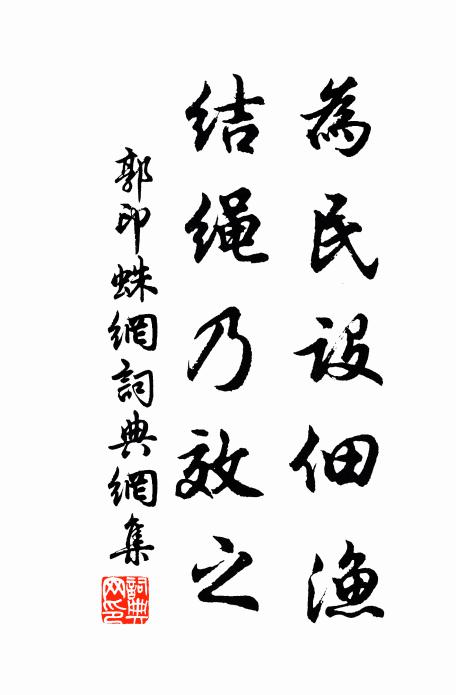 為民設佃漁
结绳乃效之
郭印蛛網詞典網集
詞典
网印